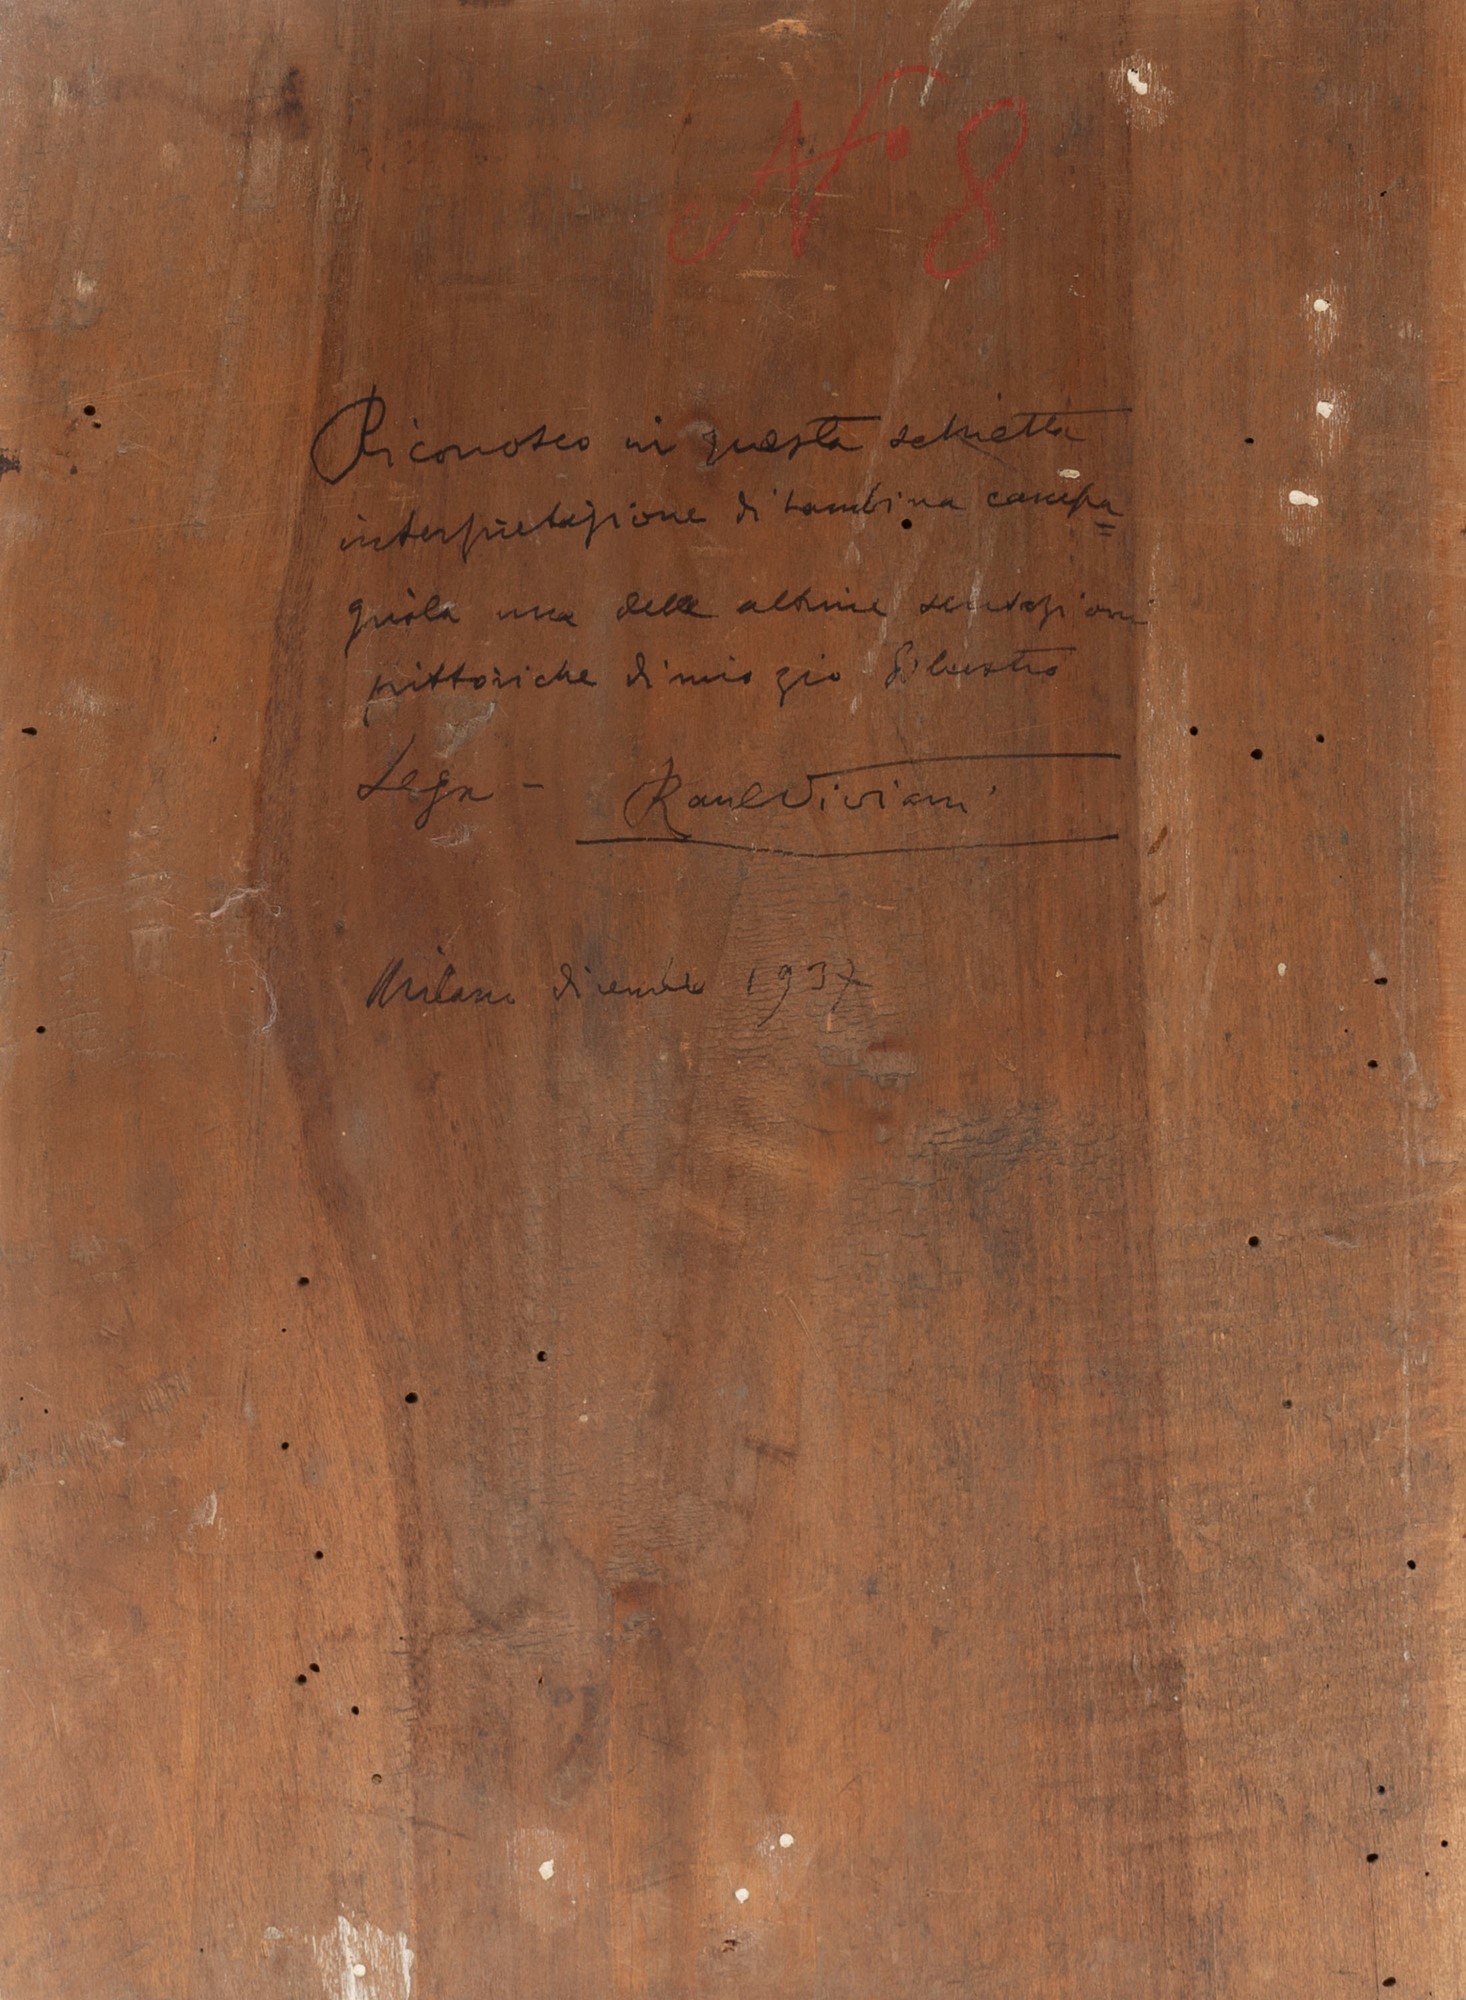 N° 8
Riconosco in questa schietta
interpretazione di bambina campa=
guola una delle ultime sensazioni
pittoriche di mio zio Silvestro
Lega - Raul Viviani
Milano dicembre 1937